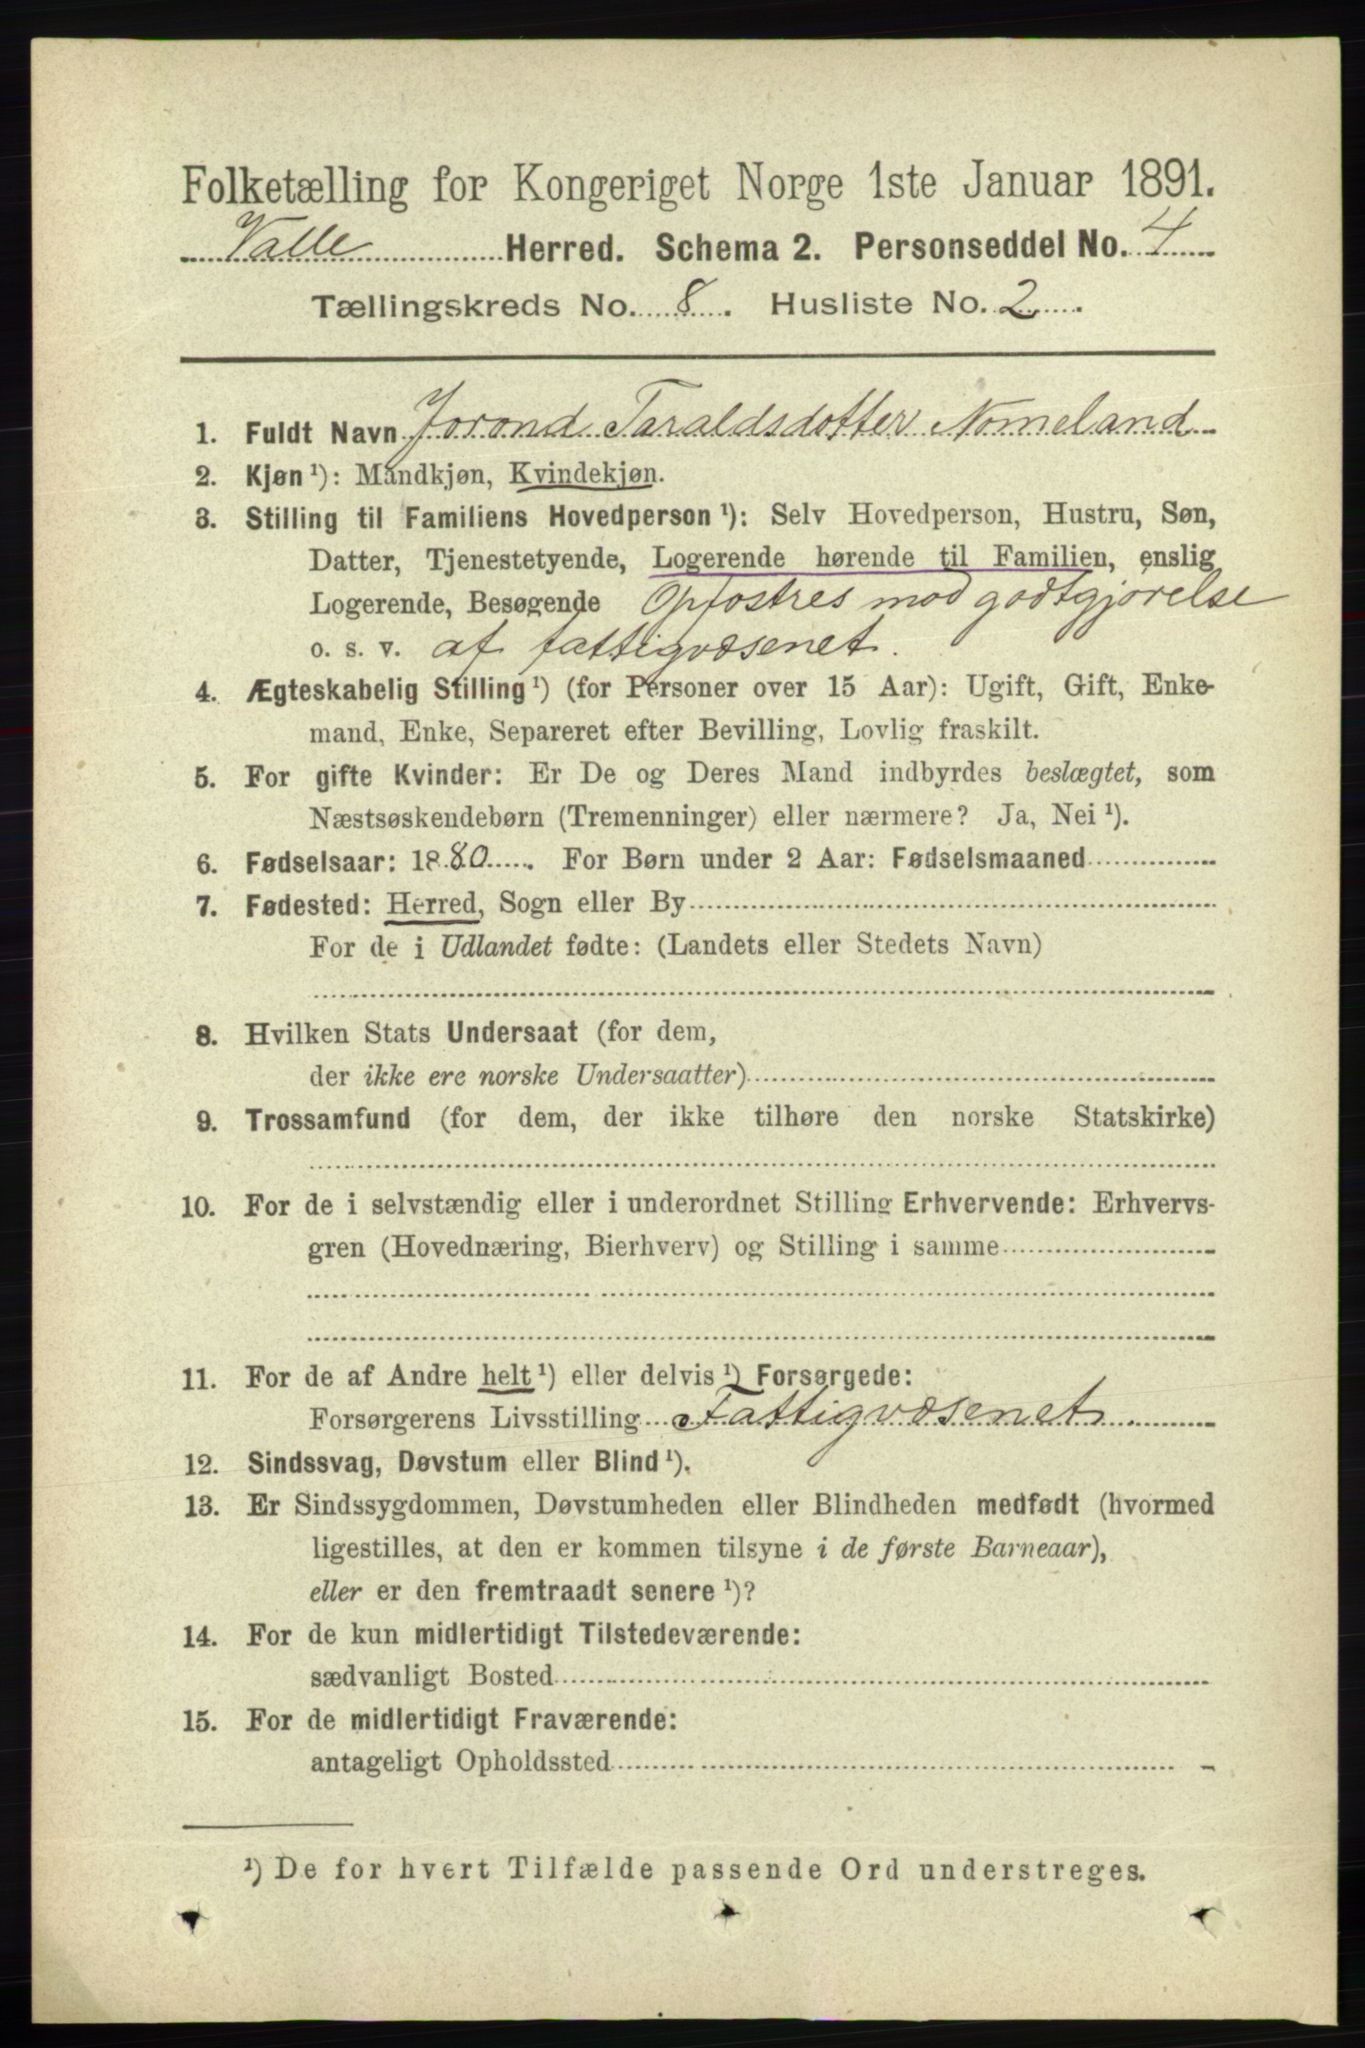 Folketælling for Kongeriget Norge 1ste Januar 1891.
Valle Herred. Schema 2. Personseddel No. 4
Tællingskreds No. 8. Husliste No. 2
1. Fuldt Navn Jorond Taraldsdotter Nomeland
2. Kjøn ¹): Mandkjøn, Kvindekjøn.
3. Stilling til Familiens Hovedperson ¹): Selv Hovedperson, Hustru, Søn,
Datter, Tjenestetyende, Logerende hørende til Familien, enslig
Logerende, Besøgende Opfostres mod godtgjørelse
o. s. v. af fattigvæsenet.
4. Ægteskabelig Stilling ¹) (for Personer over 15 Aar): Ugift, Gift, Enke-
mand, Enke, Separeret efter Bevilling, Lovlig fraskilt.
5. For gifte Kvinder: Er De og Deres Mand indbyrdes beslægtet, som
Næstsøskendebørn (Tremenninger) eller nærmere? Ja, Nei ¹).
6. Fødselsaar: 1880. For Børn under 2 Aar: Fødselsmaaned
7. Fødested: Herred, Sogn eller By
For de i Udlandet fødte: (Landets eller Stedets Navn)
8. Hvilken Stats Undersaat (for dem,
der ikke ere norske Undersaatter)
9. Trossamfund (for dem, der ikke tilhøre den norske Statskirke)
10. For de i selvstændig eller i underordnet Stilling Erhvervende: Erhvervs-
gren (Hovednæring, Bierhverv) og Stilling i samme
11. For de af Andre helt ¹) eller delvis ¹) Forsørgede:
Forsørgerens Livsstilling Fattigvæsenet.
12. Sindssvag, Døvstum eller Blind ¹).
13. Er Sindssygdommen, Døvstumheden eller Blindheden medfødt (hvormed
ligestilles, at den er kommen tilsyne i de første Barneaar),
eller er den fremtraadt senere ¹)?
14. For de kun midlertidigt Tilstedeværende:
sædvanligt Bosted
15. For de midlertidigt Fraværende:
antageligt Opholdssted
¹) De for hvert Tilfælde passende Ord understreges.